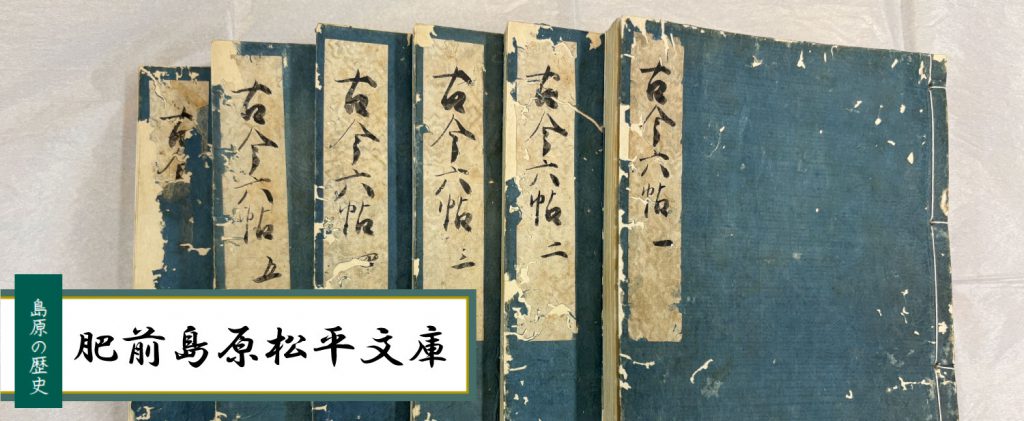 古今六帖 一
古今六帖 二
古今六帖 三
古今六帖 四
古今六帖 五
古今
島原の歴史
肥前島原松平文庫